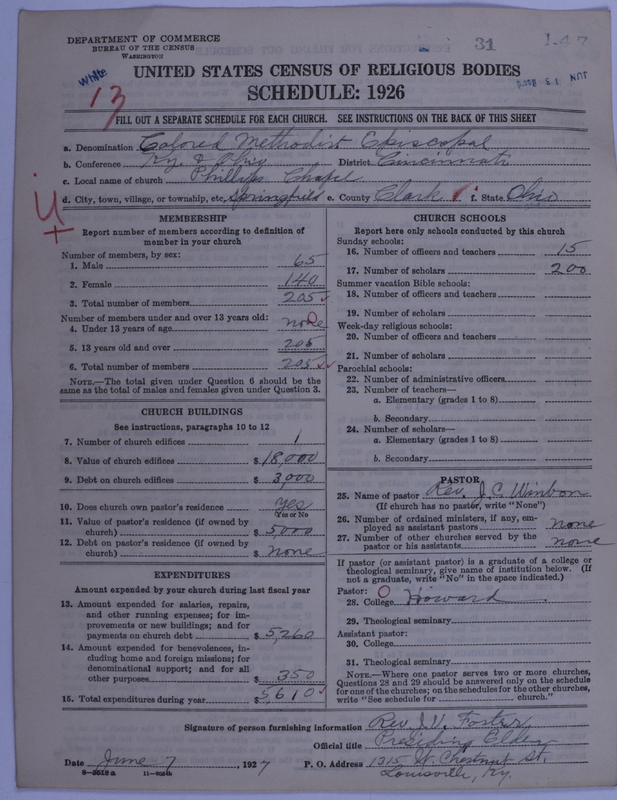 DEPARTMENT OF COMMERCE
BUREAU OF THE CENSUS
WASHINGTON
31
White
13
UNITED STATES CENSUS OF RELIGIOUS BODIES
SCHEDULE: 1926
FILL OUT A SEPARATE SCHEDULE FOR EACH CHURCH. SEE INSTRUCTIONS ON THE BACK OF THIS SHEET
a. Denomination Colored Methodist Episcopal
b. Conference Ky. & Ohio District Cincinnati
c. Local name of church Phillips Chapel
d. City, town, village, or township, etc. Springfield e. County Clark f. State Ohio
MEMBERSHIP
Report number of members according to definition of member in your church
Number of members, by sex:
1. Male 65
2. Female 140
3. Total number of members 205
Number of members under and over 13 years old:
4. Under 13 years of age none
5. 13 years old and over 205
6. Total number of members 205
NOTE.—The total given under Question 6 should be same as the total of males and females given under Question 3.
CHURCH BUILDINGS
See instructions, paragraphs 10 to 12
7. Number of church edifices 1
8. Value of church edifices $18,000
9. Debt on church edifices $3,000
10. Does church own pastor's residence? Yes
(Yes or No)
11. Value of pastor's residence (if owned by
church) $5,000
12. Debt on pastor's residence (if owned by
church) $none
EXPENDITURES
Amount expended by your church during last fiscal year
13. Amount expended for salaries, repairs,
and other running expenses; for im-
provements or new buildings; and for
payments on church debt $5,260
14. Amount expended for benevolences, in-
cluding home and foreign missions; for
denominational support; and for all
other purposes $350
15. Total expenditures during year $5610
CHURCH SCHOOLS
Report here only schools conducted by this church
Sunday schools:
16. Number of officers and teachers 15
17. Number of scholars 200
Summer vacation Bible schools:
18. Number of officers and teachers
19. Number of scholars
Week-day religious schools:
20. Number of officers and teachers
21. Number of scholars
Parochial schools:
22. Number of administrative officers
23. Number of teachers—
a. Elementary (grades 1 to 8)
b. Secondary
24. Number of scholars—
a. Elementary (grades 1 to 8)
b. Secondary
PASTOR
25. Name of pastor Rev. J. C. Winbon
(If church has no pastor, write "None")
26. Number of ordained ministers, if any, em-
ployed as assistant pastors none
27. Number of other churches served by the
pastor or his assistants none
If pastor (or assistant pastor) is a graduate of a college or
theological seminary, give name of institution below. (If
not a graduate, write "No" in the space indicated.)
Pastor:
28. College Howard
29. Theological seminary
Assistant pastor:
30. College
31. Theological seminary
NOTE.—Where one pastor serves two or more churches,
Questions 28 and 29 should be answered only on the schedule
for one of the churches; on the schedules for the other churches,
write "See schedule for church."
Signature of person furnishing information Rev. J. V. Foster
Official title Presiding Elder
Date June 7, 1927 P. O. Address 1315 W. Chestnut St.
Louisville, Ky.